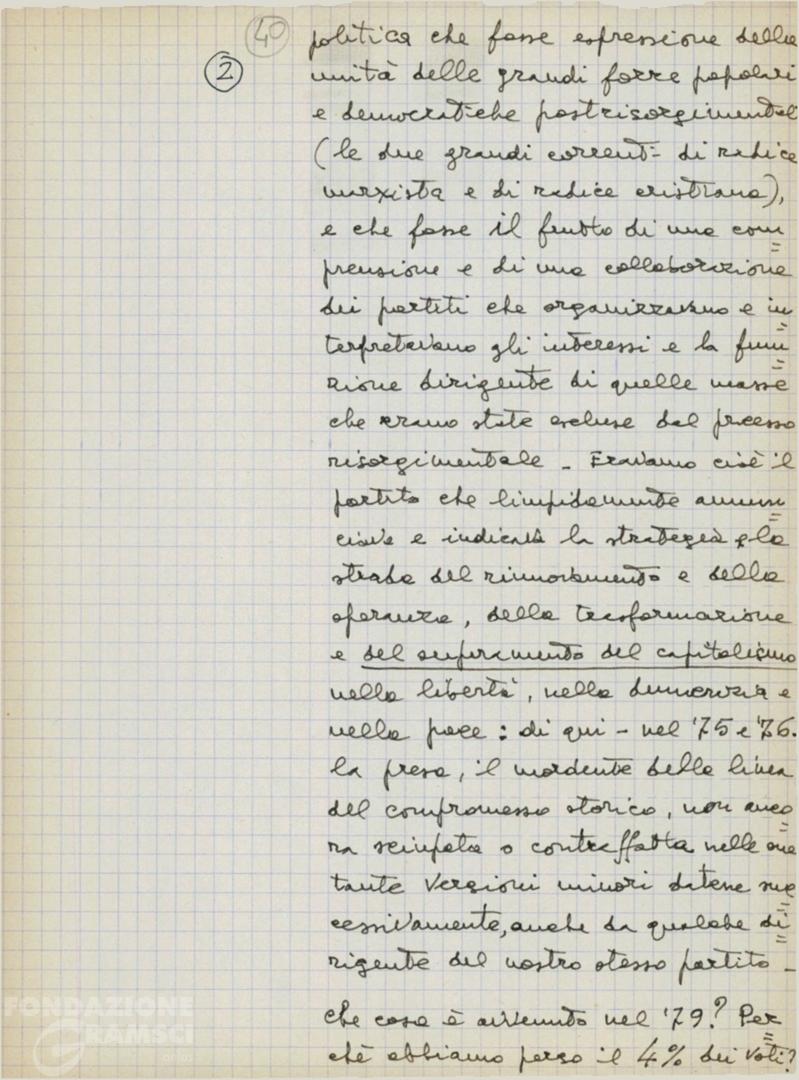 40
2
politica che fosse espressione della
unità delle grandi forze popolari
e democratiche postrisorgimentali
(le due grandi correnti di radice
marxista e di radice cristiana),
e che fosse il frutto di una com=
prensione e di una collaborazione
dei partiti che organizzavano e in=
terpretavano gli interessi e la fun=
zione dirigente di quelle masse
che erano state escluse dal processo
risorgimentale - Eravamo cioè il
partito che limpidamente annun=
ciava e indicava la strategia e la
strada del rinnovamento e della
speranza, della trasformazione
e del superamento del capitalismo
nella libertà, nella democrazia e
nella pace: di qui - nel '75 e '76.
la presa, il mordente della linea
del compromesso storico, non anco=
ra sciupata o contraffatta nelle
tante versioni minori datene suc=
cessivamente, anche da qualche di=
rigente del nostro stesso partito -
che cosa è avvenuto nel '79? Per=
chè abbiamo perso il 4% dei voti?
FONDAZIONE
GRAMSCI